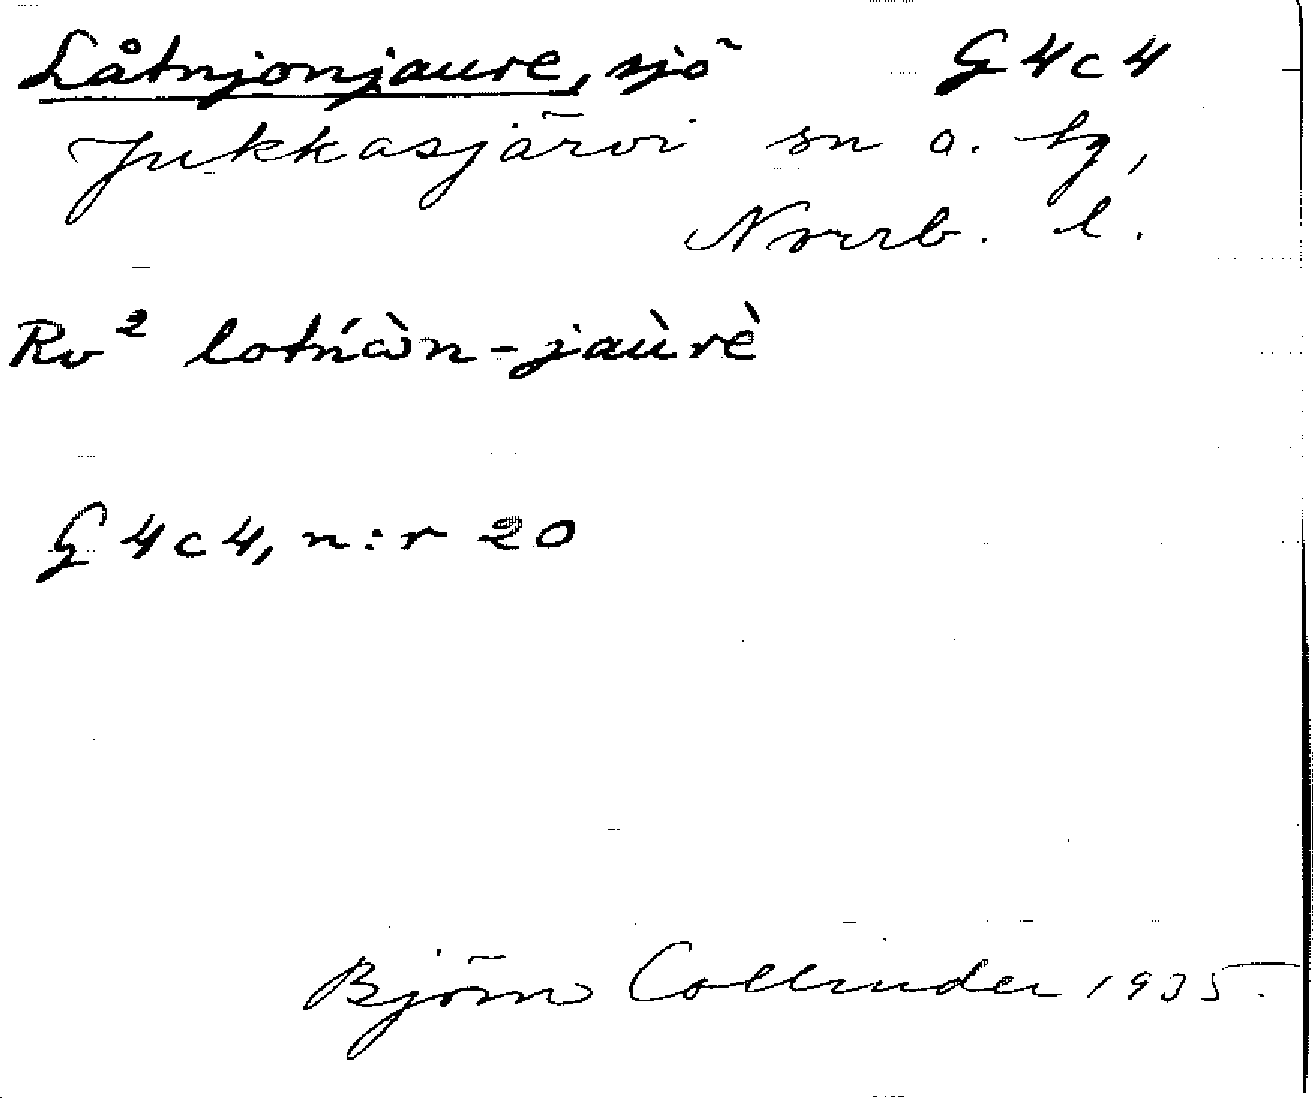 Låtnjonjaure, sjö G4c4
Jukkasjärvi sn o. tg,
Norrb. l.
Rv² lotńὼn-jaùrè
G4c4, n:r 20
Björn Collinder 1935.